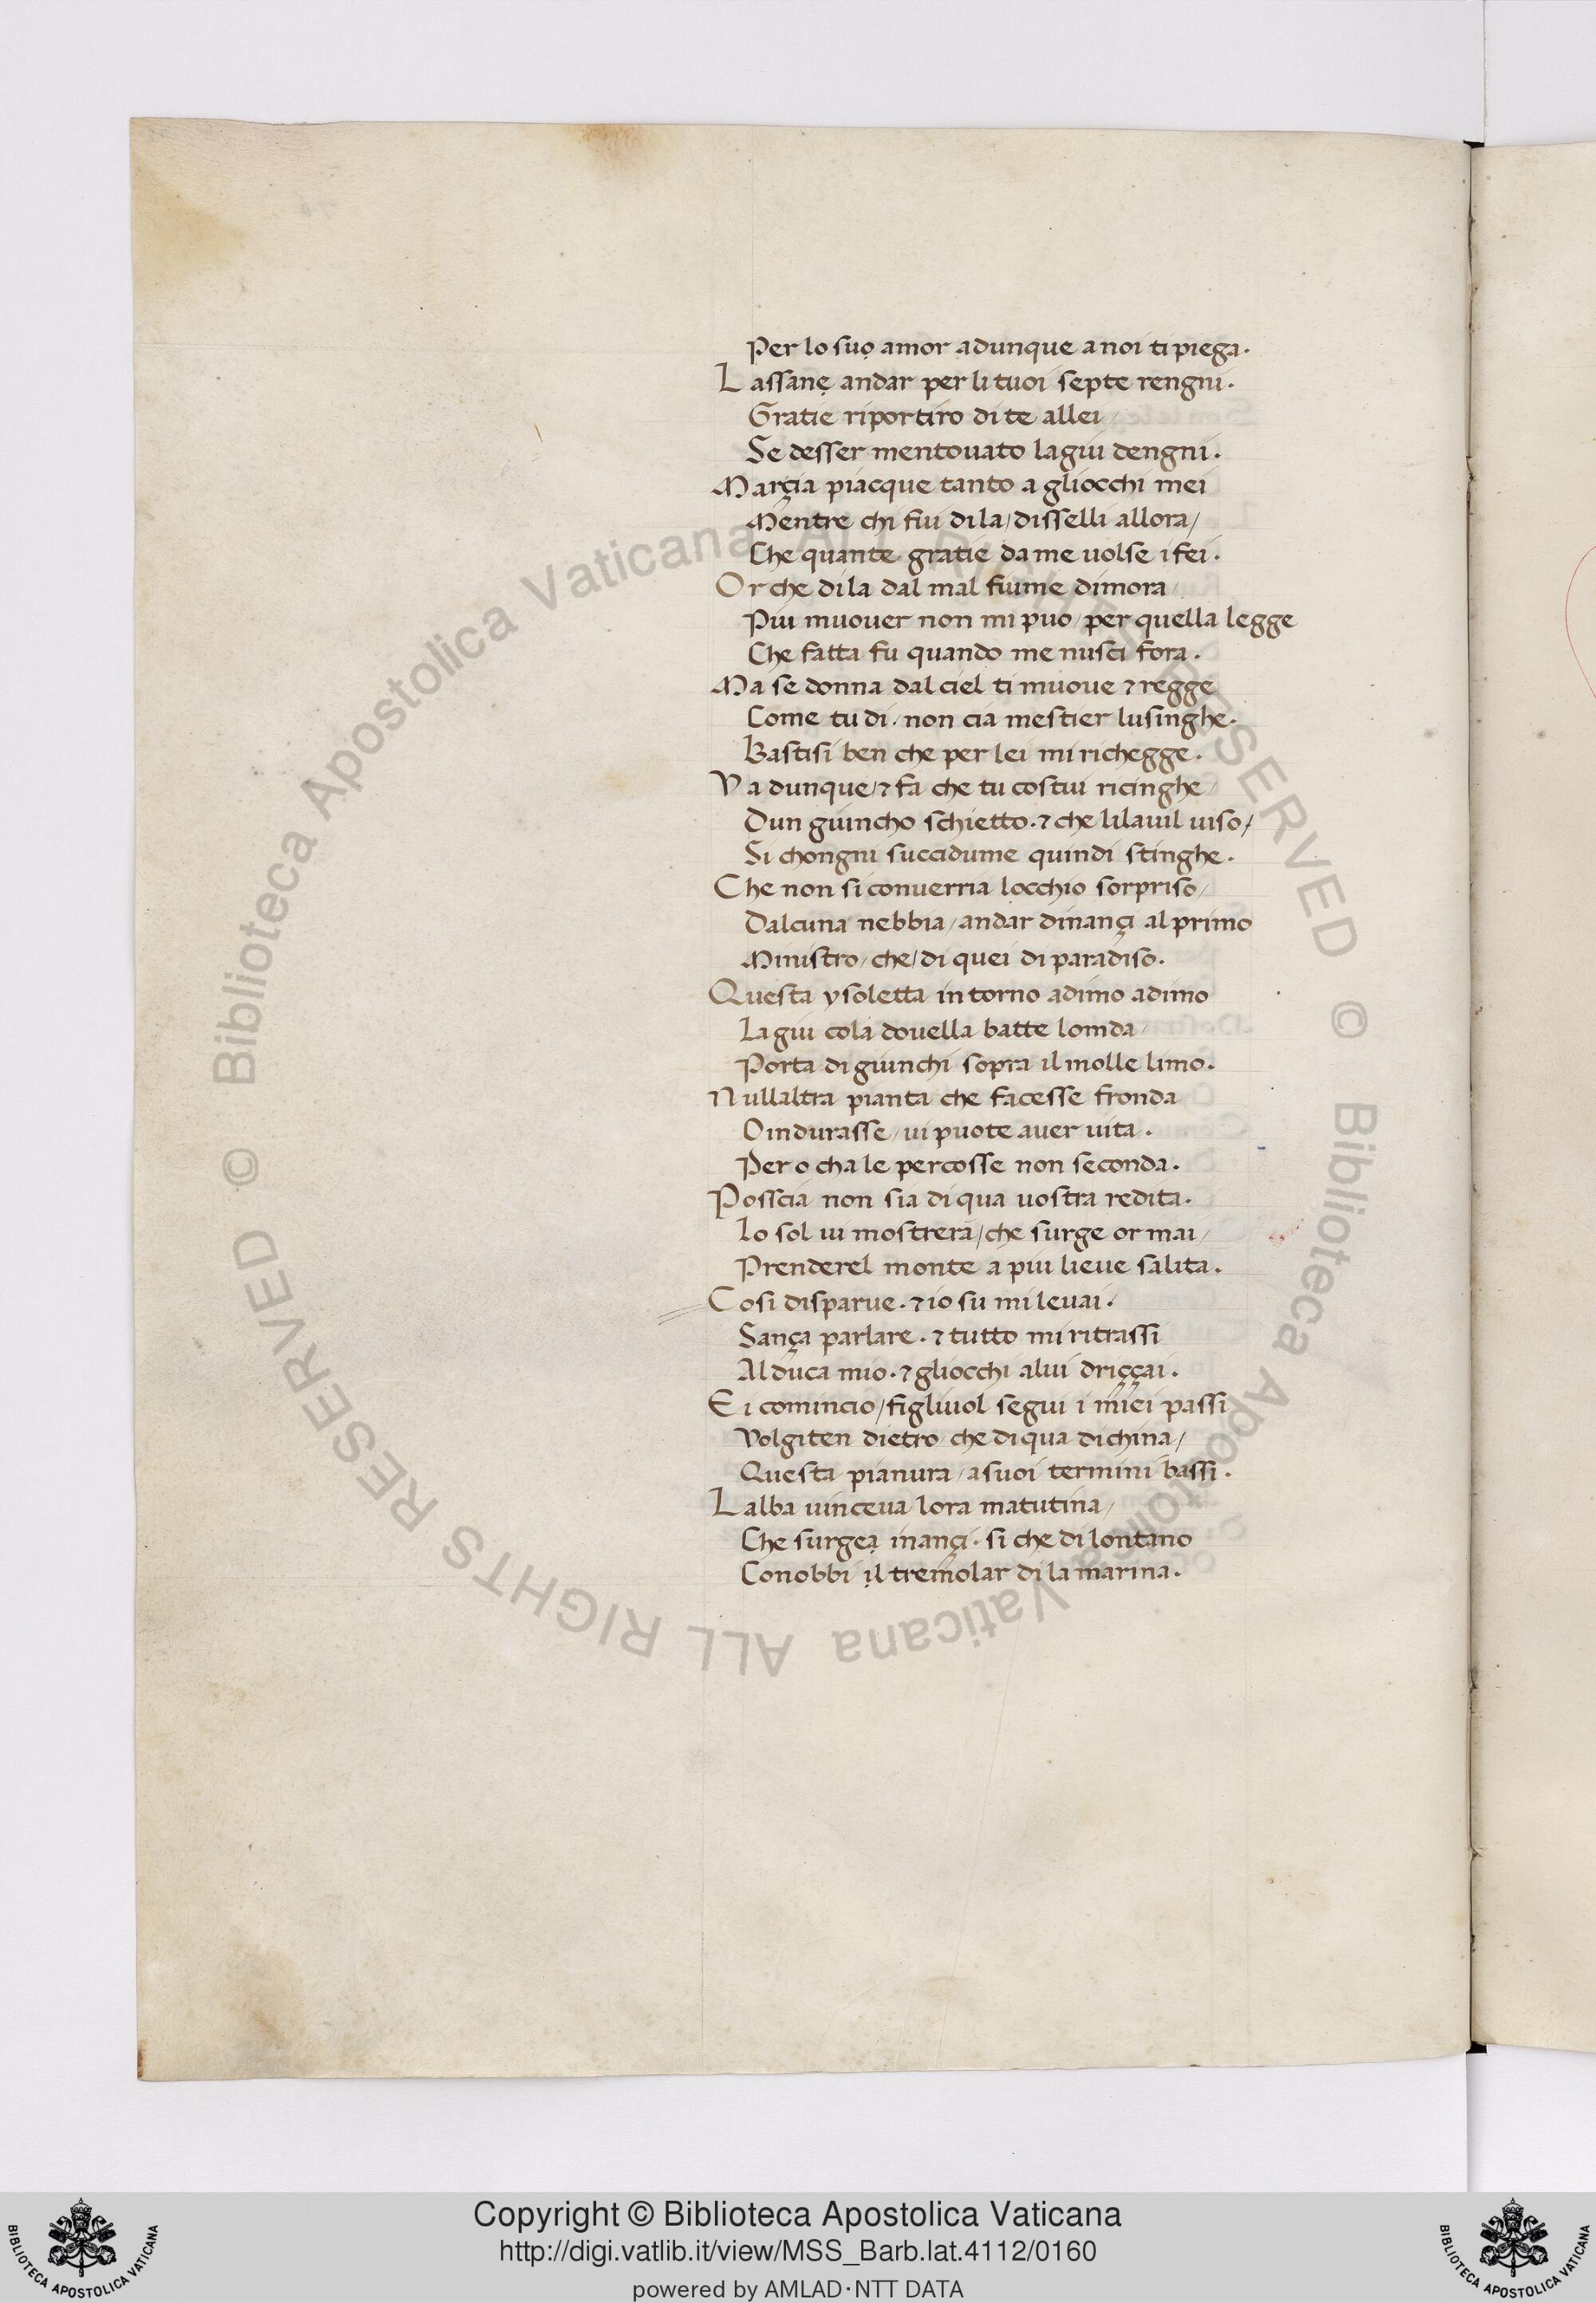 Per lo suo amor adunque a noi ti piega.
Lassane andar per li tuoi septe rengni.
Gratie riportiro di te allei/
Se desser mentouato lagiu dengni.
Marçia piacque tanto a gliocchi mei
Mentre chi fui di la/ disselli allora/
Che quante gratie da me uolse i fei.
Or che di la dal mal fiume dimora/
Piu muouer non mi puo/ per quella legge
Che fatta fu quando me nusci fora.
Ma se donna dal ciel ti muoue ⁊ regge
Come tu di/ non cia mestier lusinghe.
Bastisi ben che per lei mi richegge.
Va dunque/ ⁊ fa che tu costui ricinghe/
Dun giuncho schietto. ⁊ che li lauil uiso/
Si chongni succidume quindi stinghe.
Che non si conuerria locchio sorpriso/
Dalcuna nebbia/ andar dinançi al primo
Ministro/ che/ di quei di paradiso.
Questa ysoletta in torno adimo adimo
La giu cola douella batte lomda/
Porta di giunchi sopra il molle limo.
Nullaltra pianta che facesse fronda
O indurasse/ ui puote auer uita.
Pero cha le percosse non seconda.
Posscia non sia di qua uostra redita.
Lo sol ui mostrera/ che surge or mai/
Prenderel monte a piu lieue salita.
Cosi disparue. ⁊ io su mi leuai.
Sança parlare. ⁊ tutto mi ritrassi
Al duca mio. ⁊ gliocchi alui driççai.
Ei comincio/ figliuol segui i miei passi
Volgiten dietro/ che di qua dichina/
Questa pianura/ a suoi termini bassi.
Lalba uinceua lora matutina/
Che surgea inançi. si che di lontano
Conobbi il tremolar di la marina.
© Biblioteca Apostolica Vaticana ALL RIGHTS RESERVED © Biblioteca Apostolica Vaticana ALL RIGHTS RESERVED
BIBLIOTECA APOSTOLICA VATICANA
Copyright © Biblioteca Apostolica Vaticana
http://digi.vatlib.it/view/MSS_Barb.lat.4112/0160
powered by AMLAD·NTT DATA
BIBLIOTECA APOSTOLICA VATICANA